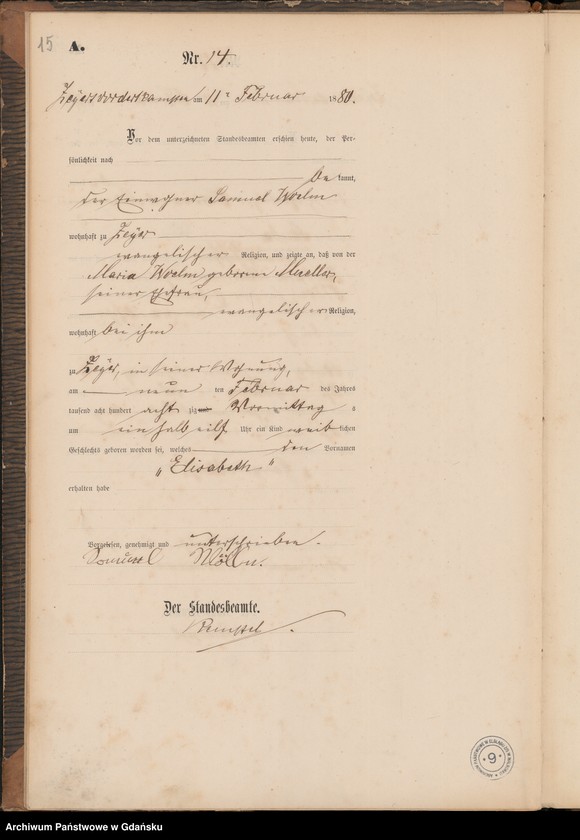 15
A.
Nr. 14.
Zeyersvorderkampen am 11ten Februar 1880.
Vor dem unterzeichneten Standesbeamten erschien heute, der Per-
sönlichkeit nach
be kannt,
der Einwohner Samuel Woelm
wohnhaft zu Zeyer
evangelischer Religion, und zeigte an, daß von der
Maria Woelm geborene Mueller,
seiner Ehefrau,
evangelischer Religion,
wohnhaft bei ihm
zu Zeyer, in seiner Wohnung,
am neun ten Februar des Jahres
tausend acht hundert acht zig und Vormittag s
um ein halb eilf Uhr ein Kind weib lichen
Geschlechts geboren worden sei, welches den Vornamen
„Elisabeth"
erhalten habe
Vorgelesen, genehmigt und unterschrieben.
Samuel
Der Standesbeamte.
9
Archiwum Państwowe w Gdańsku